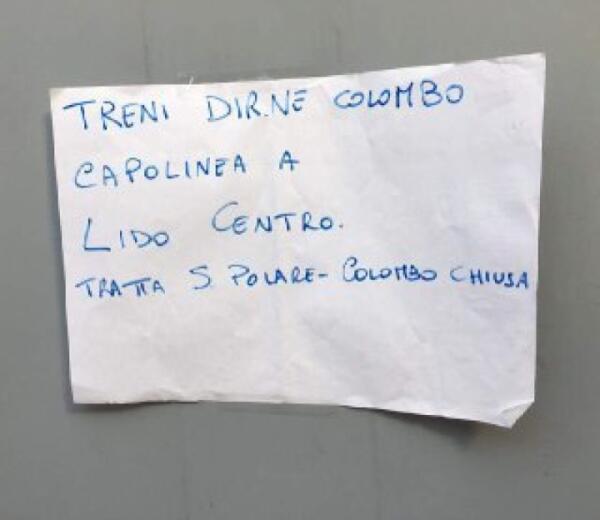 TRENI DIR.NE COLOMBO
CAPOLINEA A
LIDO CENTRO.
TRATTA S. POLARE - COLOMBO CHIUSA